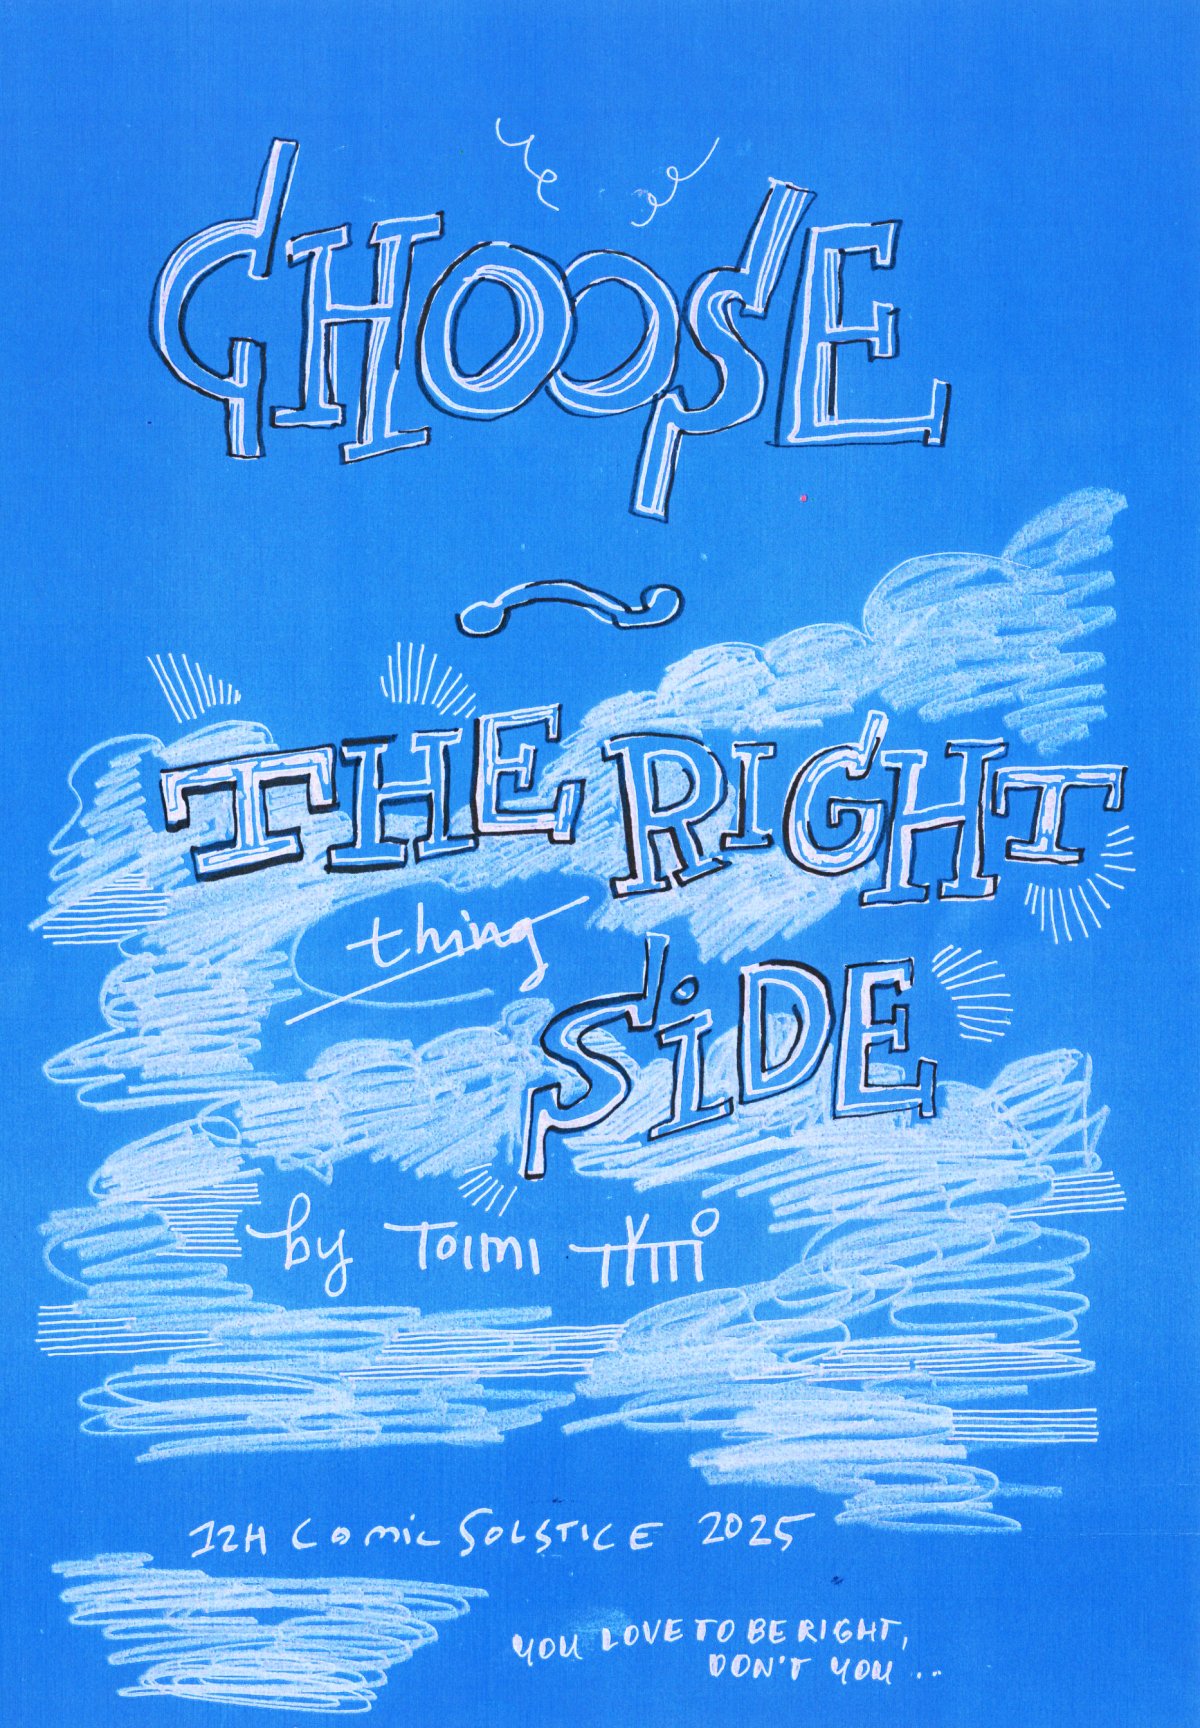 CHOOSE
THE RIGHT
thing
SiDE
by Toimi
12H Comic SOLSTICE 2025
YOU LOVE TO BE RIGHT,
DON'T YOU ..